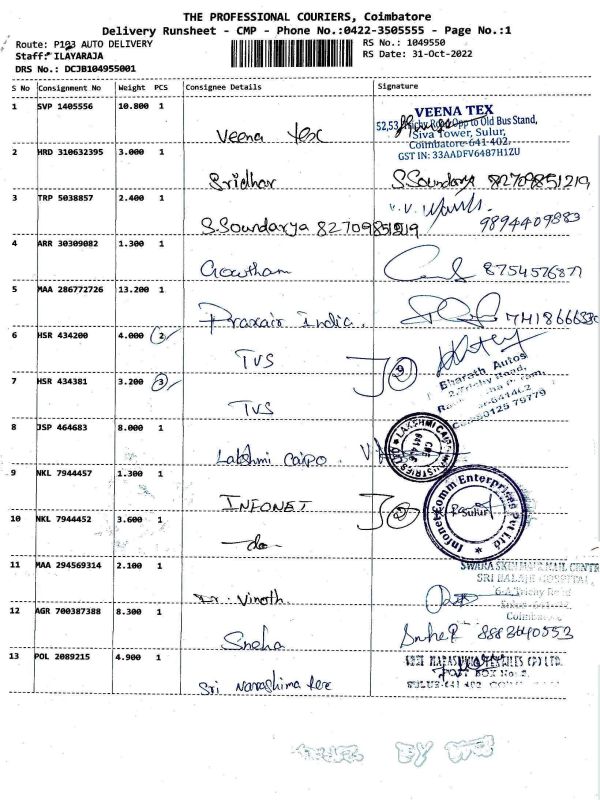 THE PROFESSIONAL COURIERS, Coimbatore
Delivery Runsheet - CMP - Phone No.:0422-3505555 - Page No.:1
Route: P103 AUTO DELIVERY
RS No.: 1049550
Staff: ILAYARAJA
RS Date: 31-Oct-2022
DRS No.: DCJB104955001
S No Consignment No Weight PCS Consignee Details Signature
1 SVP 1405556 10.800 1
Veena tex
VEENA TEX
52,53, Trichy Road, Opp to Old Bus Stand,
Siva Tower, Sulur,
Coimbatore-641 402.
GST IN: 33AADFV6487H1ZU
2 HRD 310632395 3.000 1
Sridhar S.Soundarya 82709851219
3 TRP 5038857 2.400 1
S.Soundarya 82709851219
9894409883
4 ARR 30309082 1.300 1
Gowtham 8754576877
5 MAA 286772726 13.200 1
Praxair India. 7418666530
6 HSR 434200 4.000 2
TVS
Bharath Autos
2, Trichy Road,
7 HSR 434381 3.200 3
TVS
8 JSP 464683 8.000 1
Lakshmi Caipo.
9 NKL 7944457 1.300 1
INFONET
Infonet Comm Enterprises Pvt Ltd
Sulur
10 NKL 7944452 3.600 1
- do -
11 MAA 294569314 2.100 1
Dr. Vinoth
SRI BALAJI HOSPITAL,
6-A, Trichy Road
12 AGR 700387388 8.300 1
Sneha Sneha 8883640553
13 POL 2089215 4.900 1
Sri Narashima tex
POST BOX No: 2.
SULUR-641 402